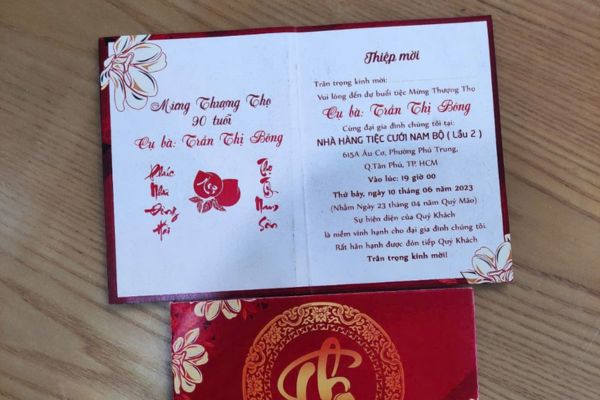 Mừng Thượng Thọ
90 tuổi
Cụ bà: Trần Thị Bông
Phúc
Như
Đông
Hải
Thọ
Thọ
Tỷ
Nam
Sơn
Thiệp mời
Trân trọng kính mời:
Vui lòng đến dự buổi tiệc Mừng Thượng Thọ
Cụ bà: Trần Thị Bông
Cùng đại gia đình chúng tôi tại:
NHÀ HÀNG TIỆC CƯỚI NAM BỘ ( Lầu 2 )
615A Âu Cơ, Phường Phú Trung,
Q.Tân Phú, TP. HCM
Vào lúc: 19 giờ 00
Thứ bảy, ngày 10 tháng 06 năm 2023
(Nhằm Ngày 23 tháng 04 năm Quý Mão)
Sự hiện diện của Quý Khách
là niềm vinh hạnh cho đại gia đình chúng tôi.
Rất hân hạnh được đón tiếp Quý Khách
Trân trọng kính mời!